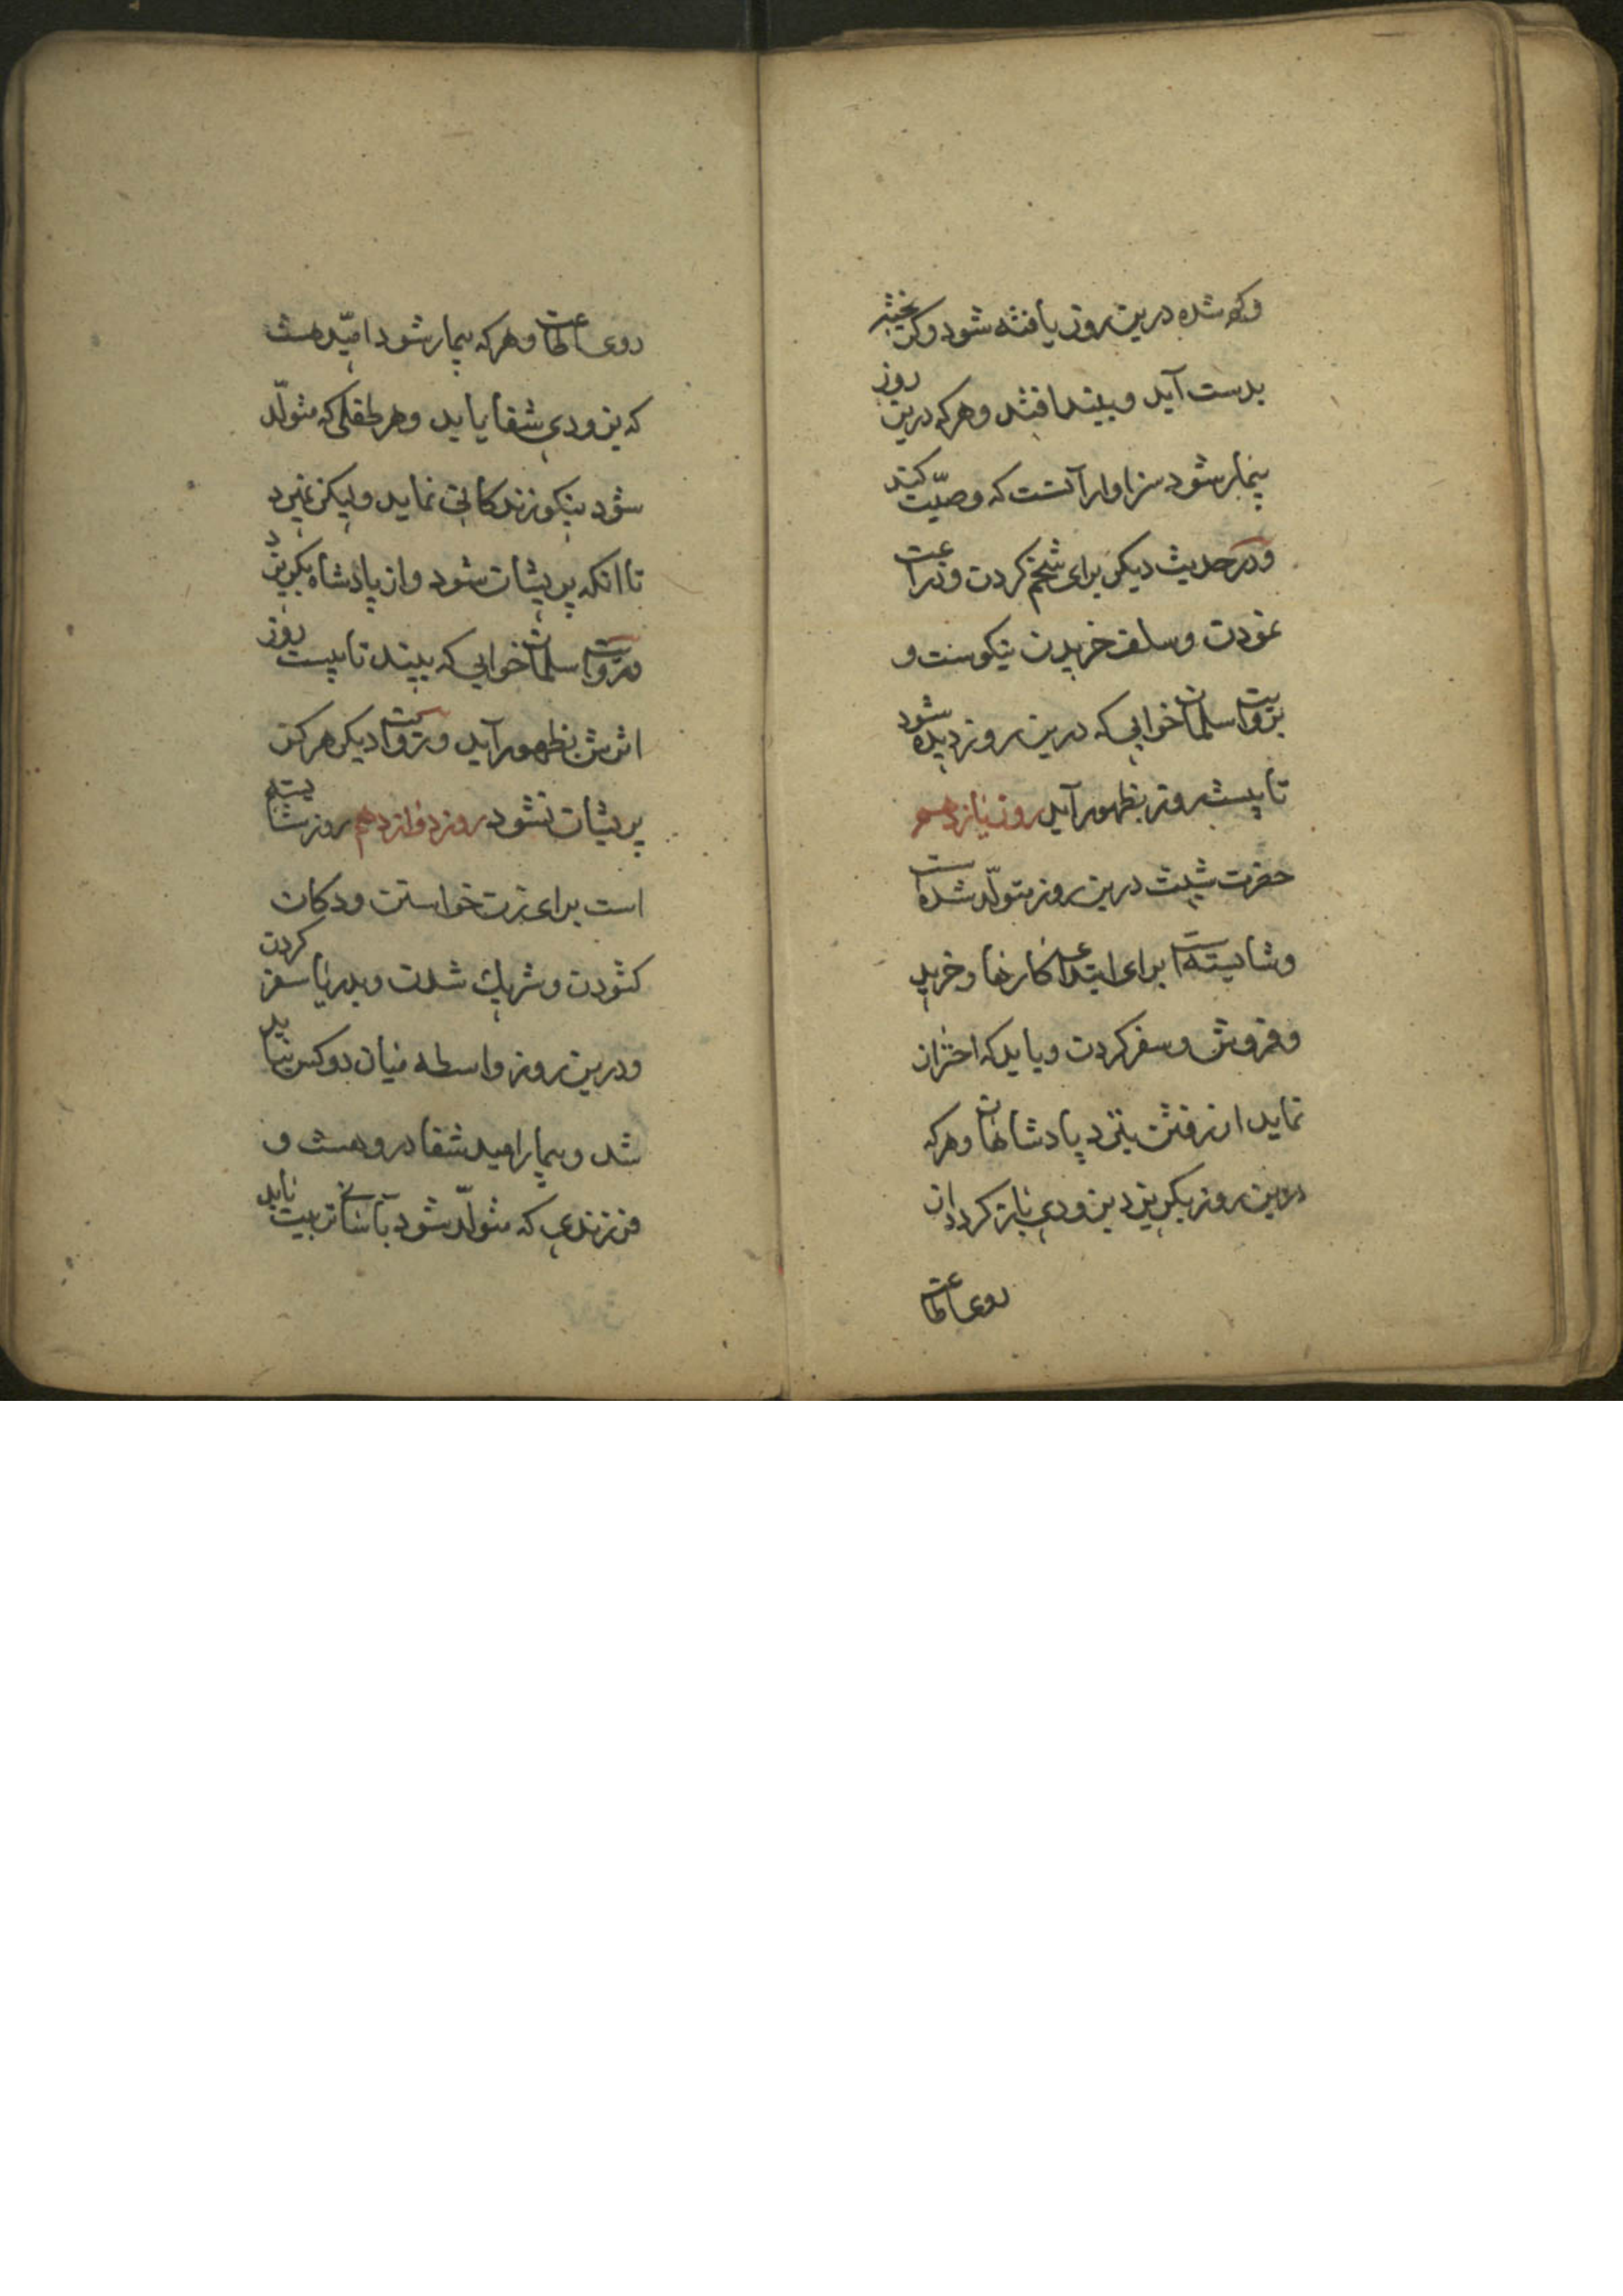 وکم شده درین روز یافته شود وکریخته
بدست آید و ببند افتد وهرکه درین روز
بیمار شود سزاوار آنست که وصیّت کند
ودر حدیث دیکر برای تخم کردن وزراعت
نمودن وسلف خریدن نیکوست و
بروایت سلمان خوابی که درین روز دیده شود
تا بیست روز بظهور آید روز یازدهم
حضرت شیث درین روز متولّد شده است
وشایسته است برای ابتدای کارها وخرید
وفروش وسفر کردن وباید که احتراز
نماید از رفتن بنزد پادشاهان وهرکه
درین روز بکریزد بزودی باز کردد از
روی اطاعت
روی اطاعت وهرکه بیمار شود امیّد هست
که بزودی شفا یابد وهر طفلی که متولّد
شود نیکو زندکانی نماید ولیکن نمیرد
تا انکه پریشان شود واز پادشاه بکریزد
وبروایت سلمان خوابی که ببیند تا بیست روز
اثرش بظهور آید وبروایت دیکر هرکز
پریشان نشود روز دوازدهم روز شایسته
است برای زن خواستن ودکان
کشودن وشریک شدن وبدریا سفر کردن
ودرین روز واسطه میان دو کس نباید
شد وبیمار امید شفا درو هست و
فرزندی که متولّد شود بآسانی تربیت یابد